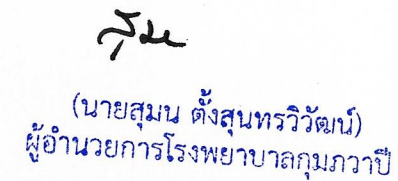 สุมน
(นายสุมน ตั้งสุนทรวิวัฒน์)
ผู้อำนวยการโรงพยาบาลกุมภวาปี